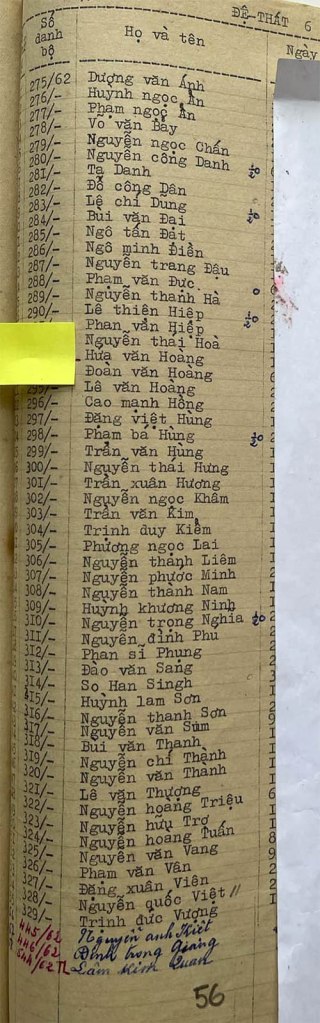 ĐỆ-THẤT 6
Số danh bộ
Họ và tên
Ngày
275/62 Dượng văn Ánh
276/- Huỳnh ngọc Ẩn
277/- Phạm ngọc Ẩn
278/- Võ văn Bảy
279/- Nguyễn ngọc Chấn
280/- Nguyễn công Danh ½
281/- Tạ Danh
282/- Đỗ công Dân
283/- Lê chí Dũng
284/- Bùi văn Đại ½
285/- Ngô tấn Đạt
286/- Ngô minh Điền
287/- Nguyễn trang Đậu
288/- Phạm văn Đực
289/- Nguyễn thanh Hà 0
290/- Lê thiên Hiệp
Phan văn Hiếp ½
Nguyễn thái Hoà
Hứa văn Hoàng
Đoàn văn Hoàng
295/- Lê văn Hoàng
296/- Cao mạnh Hồng
297/- Đặng việt Hùng
298/- Phạm bá Hùng ½ 2
299/- Trần văn Hùng
300/- Nguyễn thái Hưng
30I/- Trần xuân Hương
302/- Nguyễn ngọc Khâm
303/- Trần văn Kim
304/- Trịnh duy Kiểm
305/- Phương ngọc Lai
306/- Nguyễn thành Liêm
307/- Nguyễn phước Minh
308/- Nguyễn thành Nam
309/- Huỳnh khương Ninh
3I0/- Nguyễn trọng Nghĩa ½ 2
3II/- Nguyễn đình Phu
3I2/- Phan sĩ Phụng
3I3/- Đào văn Sang
3I4/- So Han Singh
3I5/- Huỳnh lam Sơn
3I6/- Nguyễn thanh Sơn
3I7/- Nguyễn văn Sùm
3I8/- Bùi văn Thạnh
3I9/- Nguyễn chí Thành
320/- Nguyễn văn Thành
32I/- Lê văn Thượng
322/- Nguyễn hoàng Triệu
323/- Nguyễn hữu Trợ
324/- Nguyễn hoàng Tuấn
325/- Nguyễn văn Vang
326/- Phạm văn Vân
327/- Đặng xuân Viên
328/- Nguyễn quốc Việt //
329/- Trịnh đức Vượng
445/62 Nguyễn anh Kiệt
446/62 Đinh trọng Giang
Lâm kim Quan
56